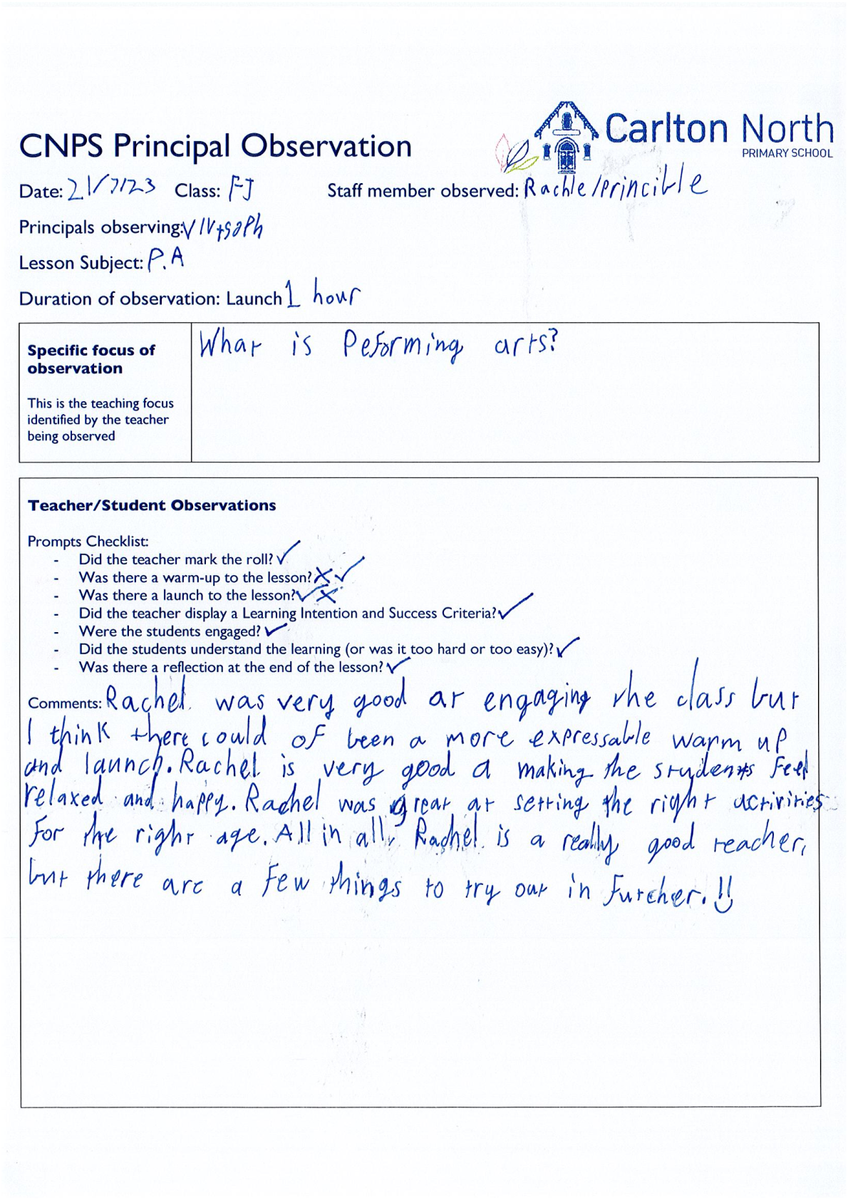 CNPS Principal Observation
Carlton North
PRIMARY SCHOOL
Date: 21/7/23 Class: FJ Staff member observed: Rachle/Principle
Principals observing: VIV+SOPh
Lesson Subject: P.A
Duration of observation: Launch 1 hour
Specific focus of
observation
This is the teaching focus
identified by the teacher
being observed
What is Peforming arts?
Teacher/Student Observations
Prompts Checklist:
- Did the teacher mark the roll? ✓
- Was there a warm-up to the lesson? ✗ ✓
- Was there a launch to the lesson? ✓ ✗
- Did the teacher display a Learning Intention and Success Criteria? ✓
- Were the students engaged? ✓
- Did the students understand the learning (or was it too hard or too easy)? ✓
- Was there a reflection at the end of the lesson? ✓
Comments: Rachel was very good at engaging the class but
I think there could of been a more expressable warm up
and launch. Rachel is very good a making the students feel
relaxed and happy. Rachel was great at setting the right activities
for the right age. All in all, Rachel is a really good teacher,
but there are a few things to try out in furcher.!!